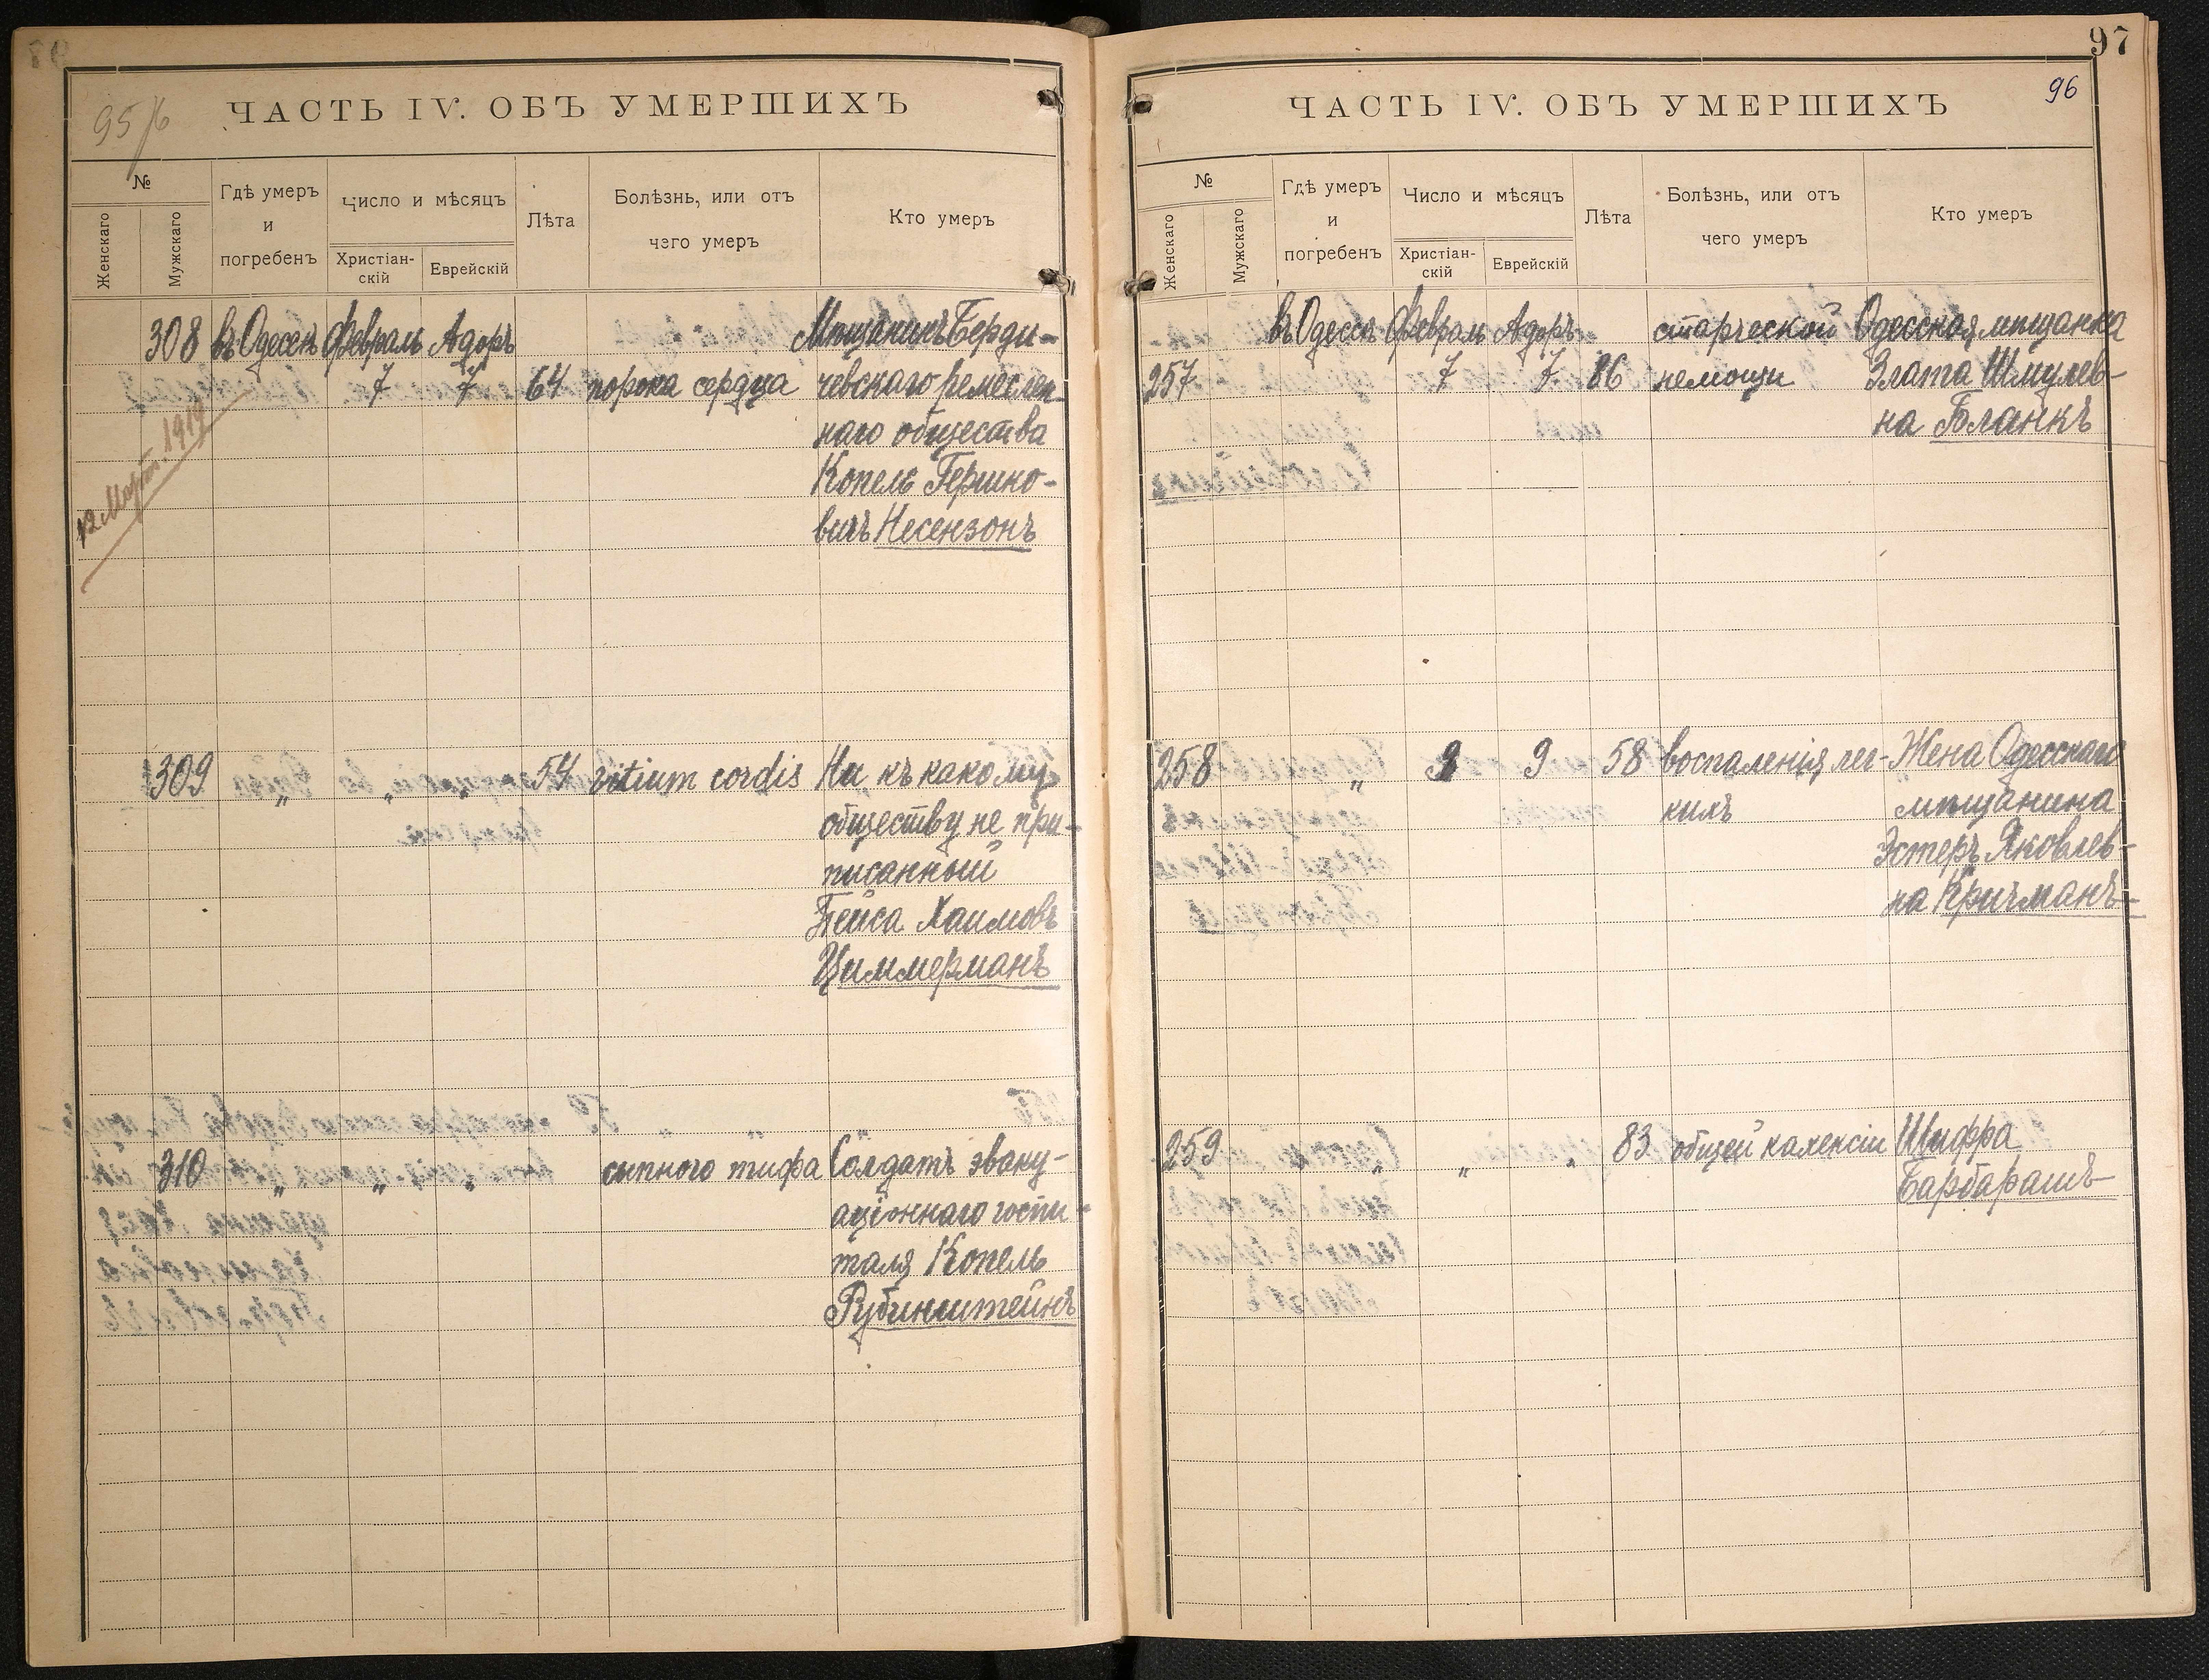 95/6
ЧАСТЬ IV. ОБЪ УМЕРШИХЪ
№
Женскаго
Мужскаго
Гдѣ умеръ
и
погребенъ
Число и мѣсяцъ
Христіан-
скій
Еврейскій
Лѣта
Болѣзнь, или отъ
чего умеръ
Кто умеръ
308 въ Одессѣ Февраль Адоръ Мѣщанинъ Берди-
7 7 64 порока сердца чевскаго ремеслен-
наго общества
Копель Гершко-
вичъ Несензонъ
12 Март. 1919
309 " " " 54 vitium cordis Ни къ какому
обществу не при-
писанный
Пейса Хаимовъ
Циммерманъ
310 " " " сыпного тифа Солдатъ эваку-
аціоннаго госпи-
таля Копель
Рубинштейнъ
97
96
ЧАСТЬ IV. ОБЪ УМЕРШИХЪ
№
Женскаго
Мужскаго
Гдѣ умеръ
и
погребенъ
Число и мѣсяцъ
Христіан-
скій
Еврейскій
Лѣта
Болѣзнь, или отъ
чего умеръ
Кто умеръ
въ Одессѣ Февраль Адоръ старческой Одесская мѣщанка
257 7 7 86 немощи Злата Шмулев-
на Бланкъ
258 " 9 9 58 воспаленія лег- Жена Одесскаго
кихъ мѣщанина
Эстеръ Яковлев-
на Кричманъ
259 " " " 83 общей кахексіи Шифра
Барбарашъ